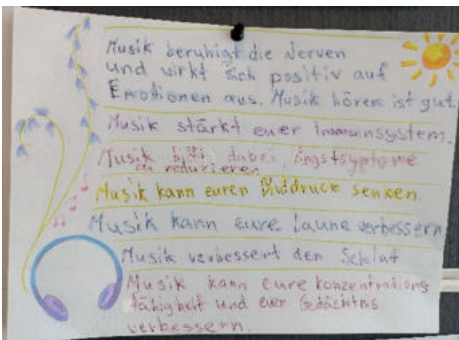 Musik beruhigt die Nerven
und wirkt sich positiv auf
Emotionen aus. Musik hören ist gut.
Musik stärkt euer Immunsystem.
Musik hilft dabei, Angstsyptome
zu reduzieren
Musik kann euren Blutdruck senken
Musik kann eure Laune verbessern
Musik verbessert den Schlaf
Musik kann eure konzentrations
fähigkeit und euer Gedächtnis
verbessern.